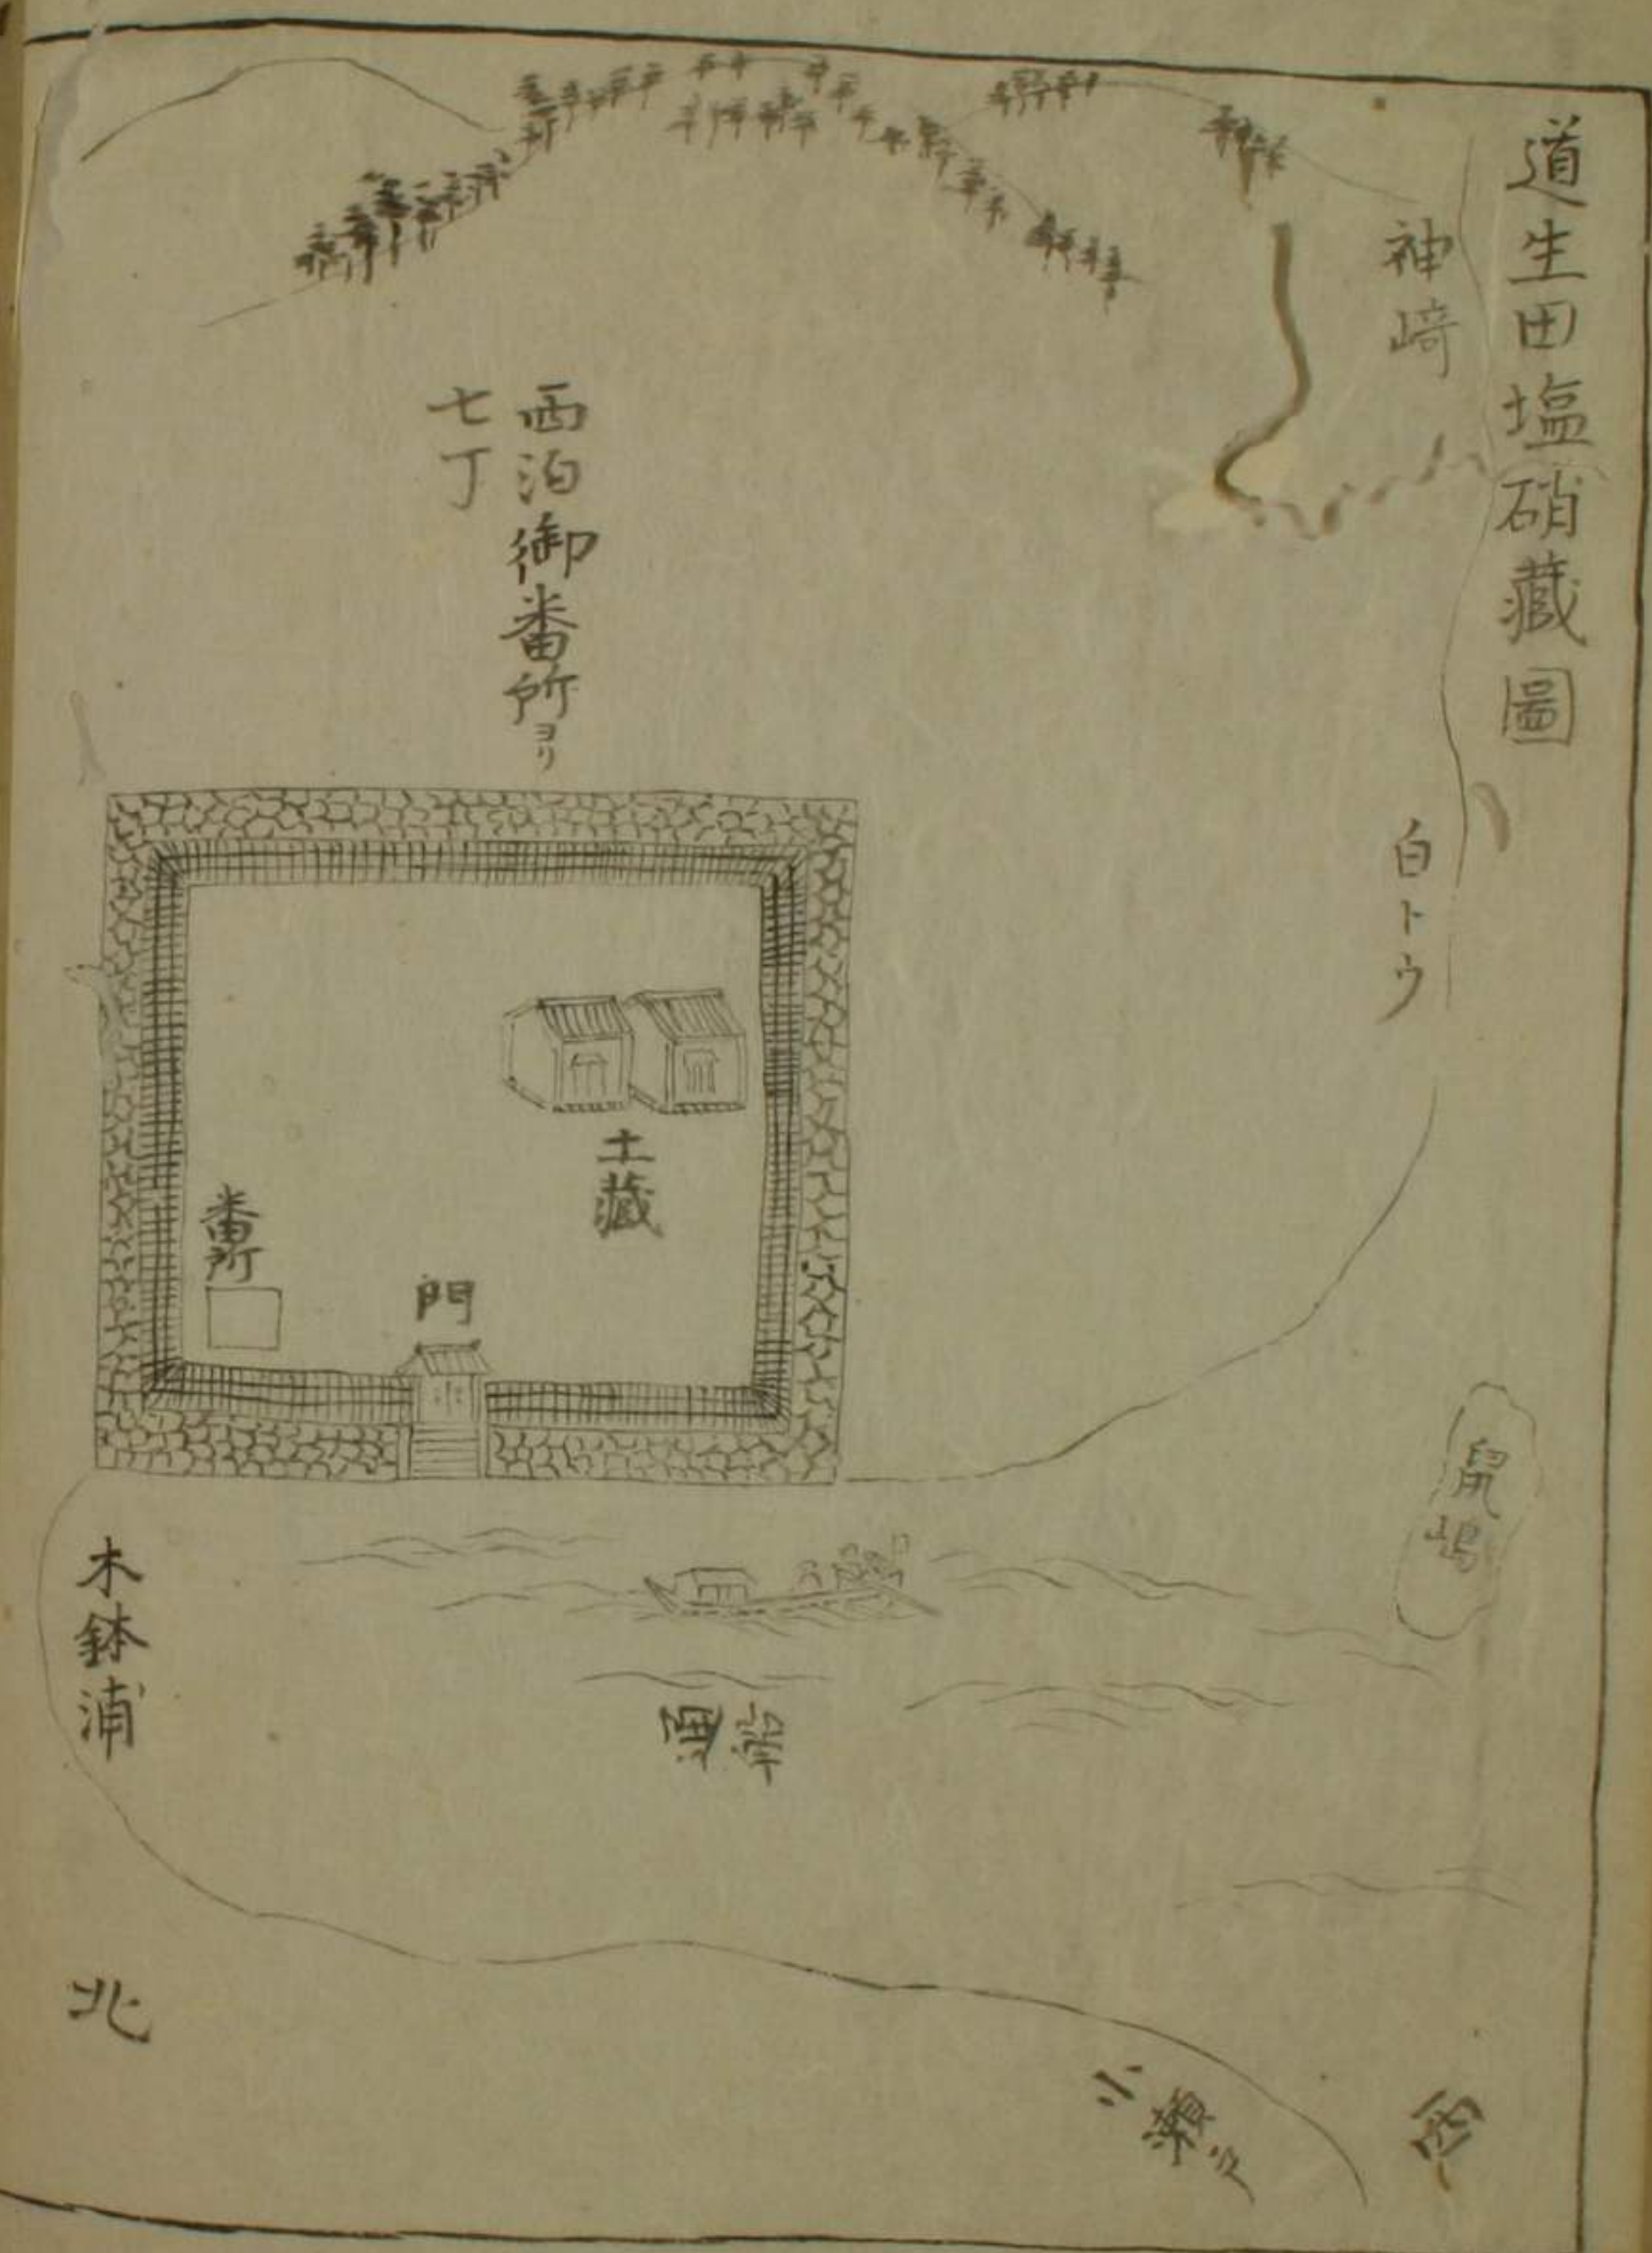 道生田塩硝藏圖
神崎
白トウ
西泊御番所ヨリ
七丁
土藏
番所
門
鼠嶋
木鉢浦
北
小瀬戸
西